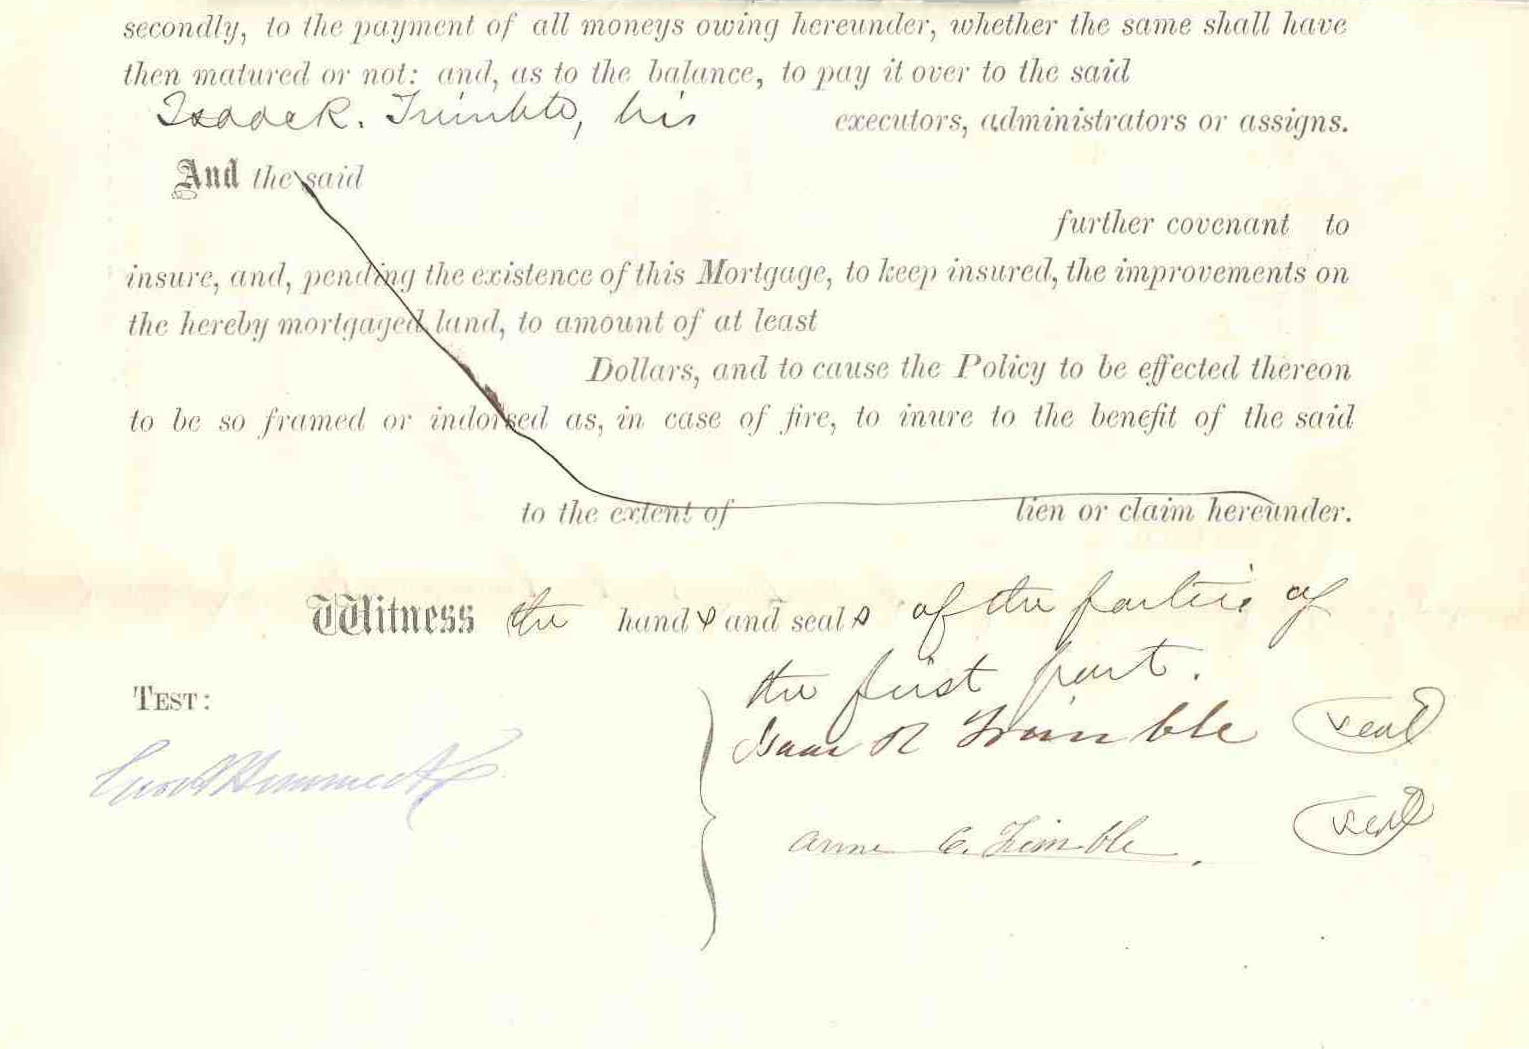 secondly, to the payment of all moneys owing hereunder, whether the same shall have
then matured or not: and, as to the balance, to pay it over to the said
Isaac R. Trimble, his executors, administrators or assigns.
And the said
further covenant to
insure, and, pending the existence of this Mortgage, to keep insured, the improvements on
the hereby mortgaged land, to amount of at least
Dollars, and to cause the Policy to be effected thereon
to be so framed or indorsed as, in case of fire, to inure to the benefit of the said
to the extent of lien or claim hereunder.
Witness the hands and seals of the parties of
the first part.
TEST:
Isaac R Trimble seal
Anne C. Trimble. seal